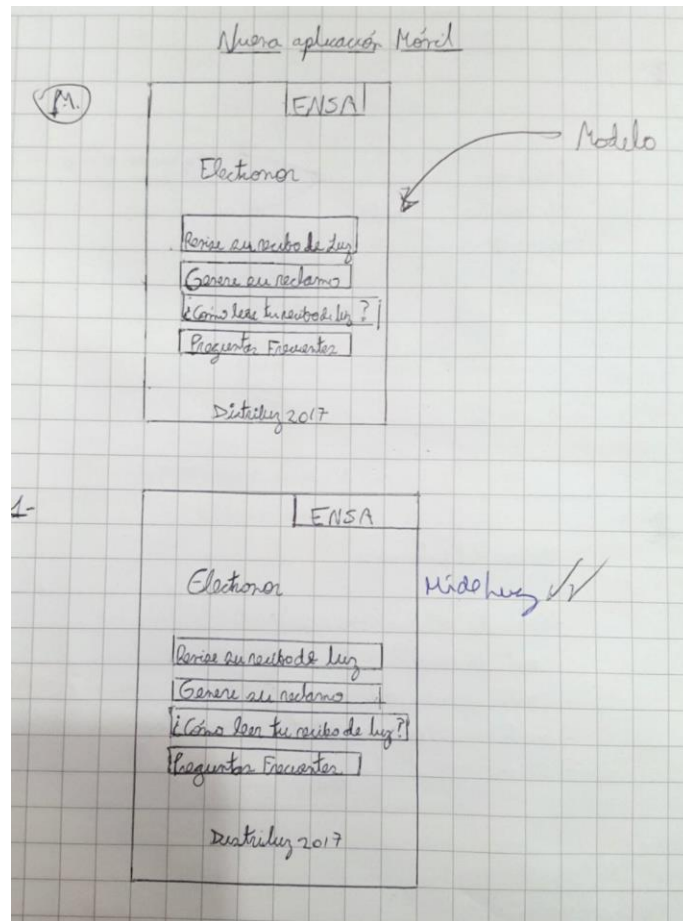 Nueva aplicación Móvil
M.
ENSA
Modelo
Electronor
Revise su recibo de Luz
Genere su reclamo
¿Cómo leer tu recibo de luz?
Preguntas Frecuentes
Distriluz 2017
1-
ENSA
Electronor
MideLuz
Revise su recibo de luz
Genere su reclamo
¿Cómo leer tu recibo de luz?
Preguntas Frecuentes
Distriluz 2017